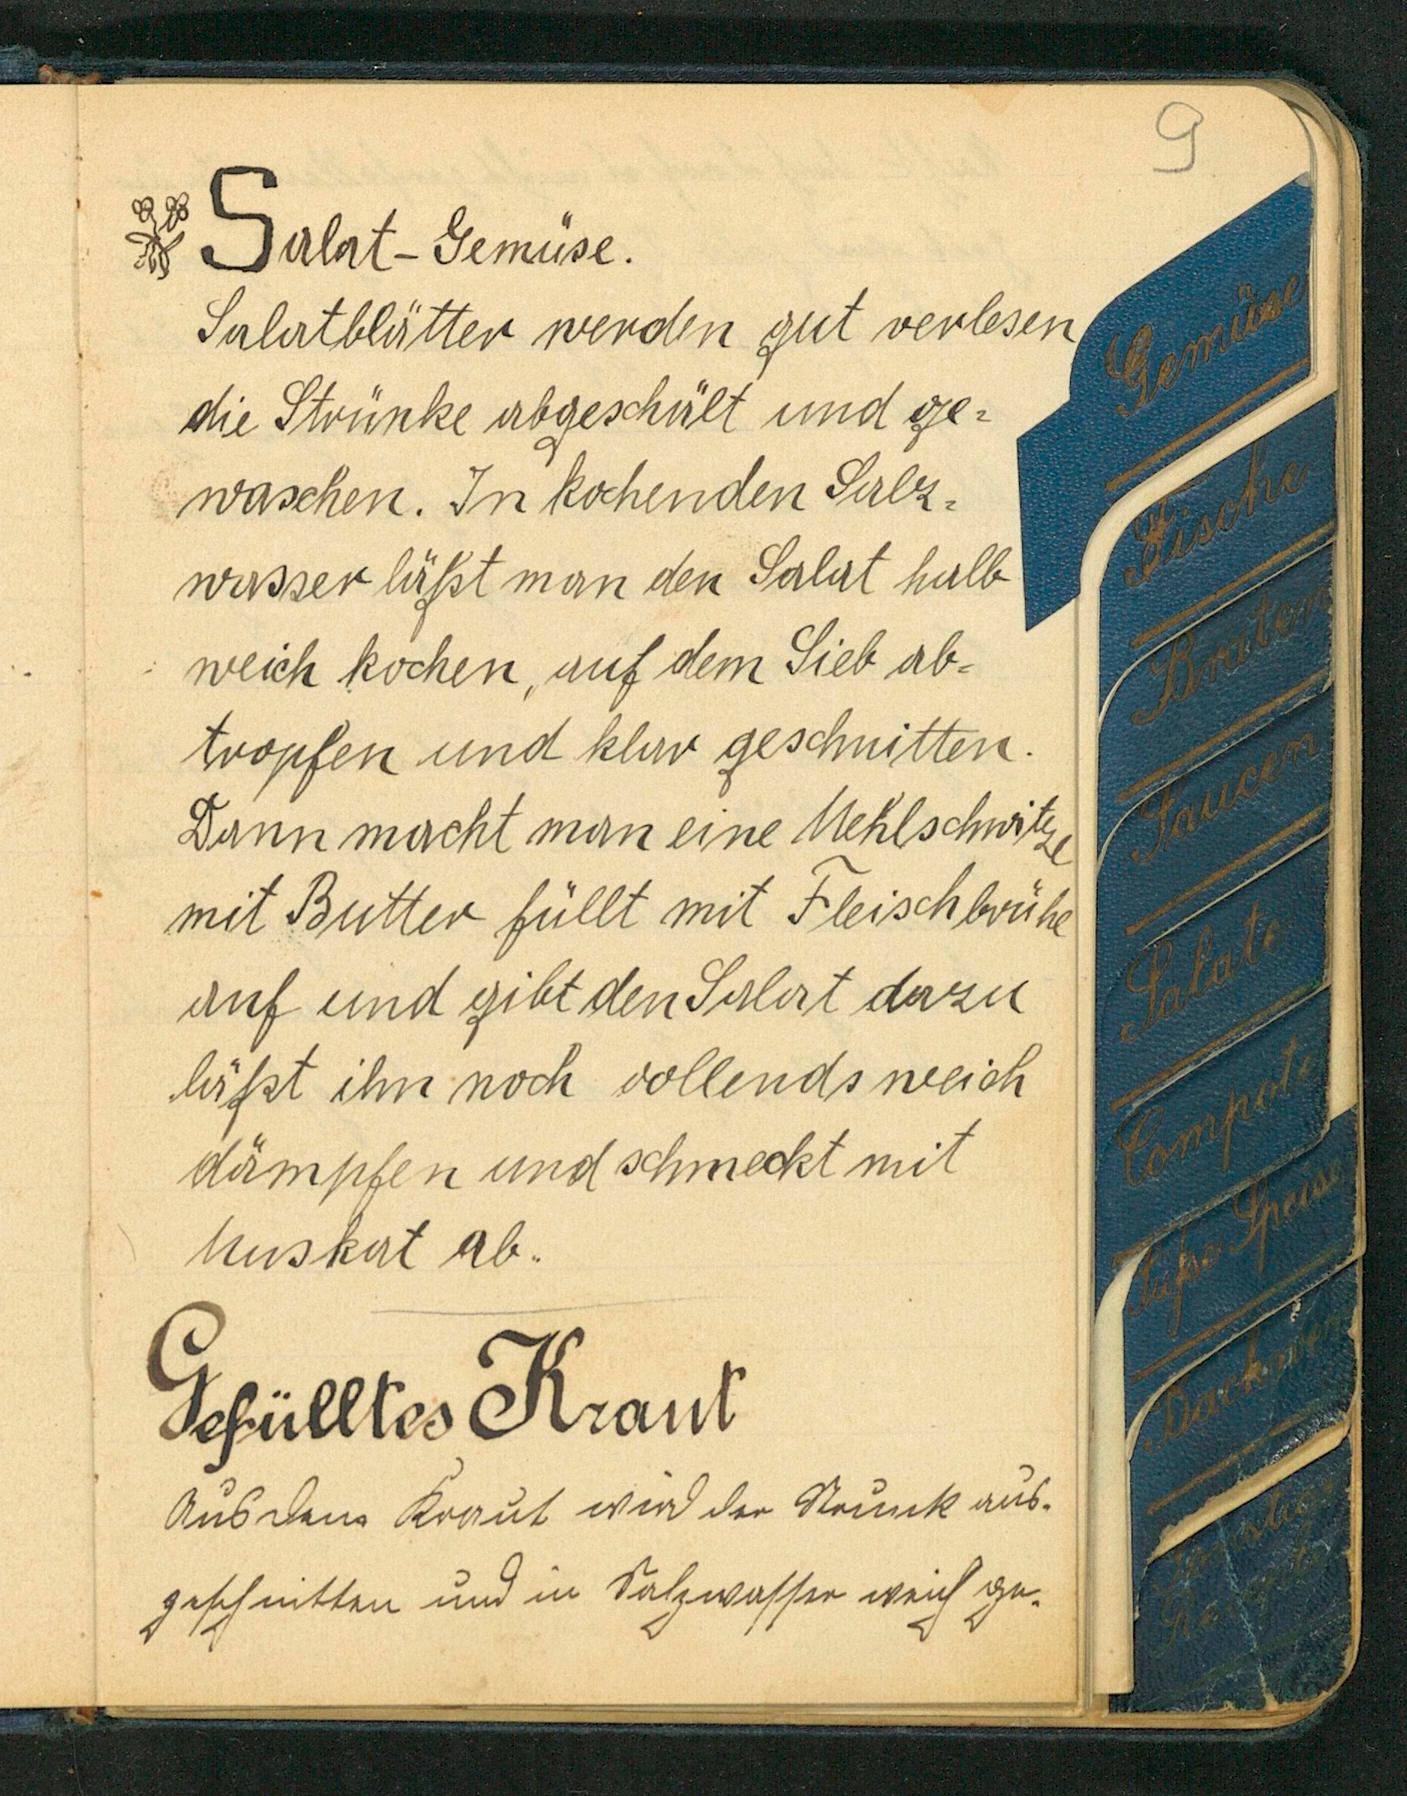 9
Salat-Gemüse.
Salatblätter werden gut verlesen
die Strünke abgeschält und ge=
waschen. In kochenden Salz=
wasser läßt man den Salat halb
weich kochen, auf dem Sieb ab=
tropfen und klar geschnitten.
Dann macht man eine Mehlschwitze
mit Butter füllt mit Fleischbrühe
auf und gibt den Salat dazu
läßt ihn noch vollends weich
dämpfen und schmeckt mit
Muskat ab.
Gefülltes Kraut
Aus dem Kraut wird der Strunk aus-
geschnitten und in Salzwasser weich ge-
Gemüse
Fische
Braten
Saucen
Salate
Compote
Süße Speise
Backwerk